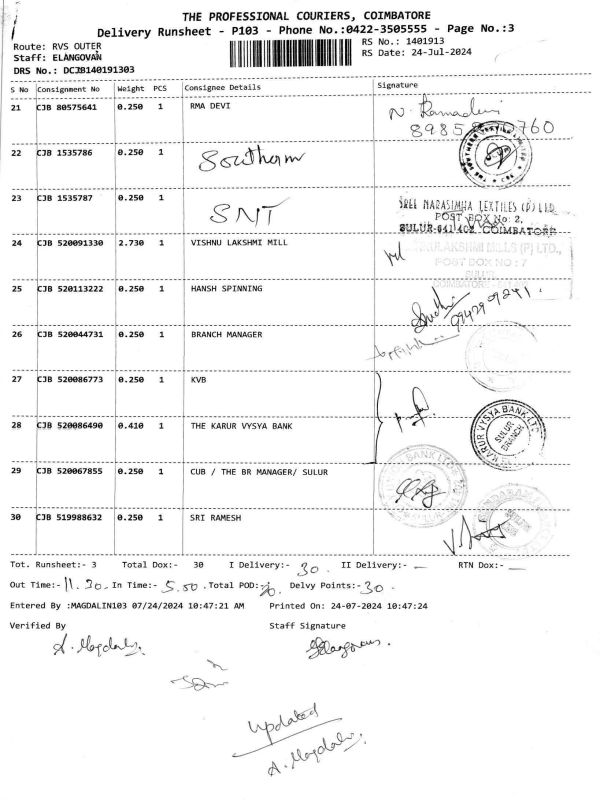 THE PROFESSIONAL COURIERS, COIMBATORE
Delivery Runsheet - P103 - Phone No.:0422-3505555 - Page No.:3
Route: RVS OUTER
Staff: ELANGOVAN
DRS No.: DCJB140191303
RS No.: 1401913
RS Date: 24-Jul-2024
S No Consignment No Weight PCS Consignee Details Signature
21 CJB 80575641 0.250 1 RMA DEVI N. Ramadevi
22 CJB 1535786 0.250 1 Southern
23 CJB 1535787 0.250 1 SNT SREE NARASIMHA TEXTILES (P) LTD
POST BOX No: 2,
SULUR-641 402. COIMBATORE
24 CJB 520091330 2.730 1 VISHNU LAKSHMI MILL LAKSHMI MILLS (P) LTD.,
POST BOX NO : 7
25 CJB 520113222 0.250 1 HANSH SPINNING
26 CJB 520044731 0.250 1 BRANCH MANAGER
27 CJB 520086773 0.250 1 KVB
28 CJB 520086490 0.410 1 THE KARUR VYSYA BANK KARUR VYSYA BANK LTD
SULUR
BRANCH
29 CJB 520067855 0.250 1 CUB / THE BR MANAGER/ SULUR
30 CJB 519988632 0.250 1 SRI RAMESH
Tot. Runsheet:- 3 Total Dox:- 30 I Delivery:- 30. II Delivery:- — RTN Dox:- —
Out Time:- 11.30. In Time:- 5.00. Total POD:- Delvy Points:- 30.
Entered By :MAGDALIN103 07/24/2024 10:47:21 AM Printed On: 24-07-2024 10:47:24
Verified By Staff Signature
A. Magdalin. Elangovan.
Updated
A. Magdalin.